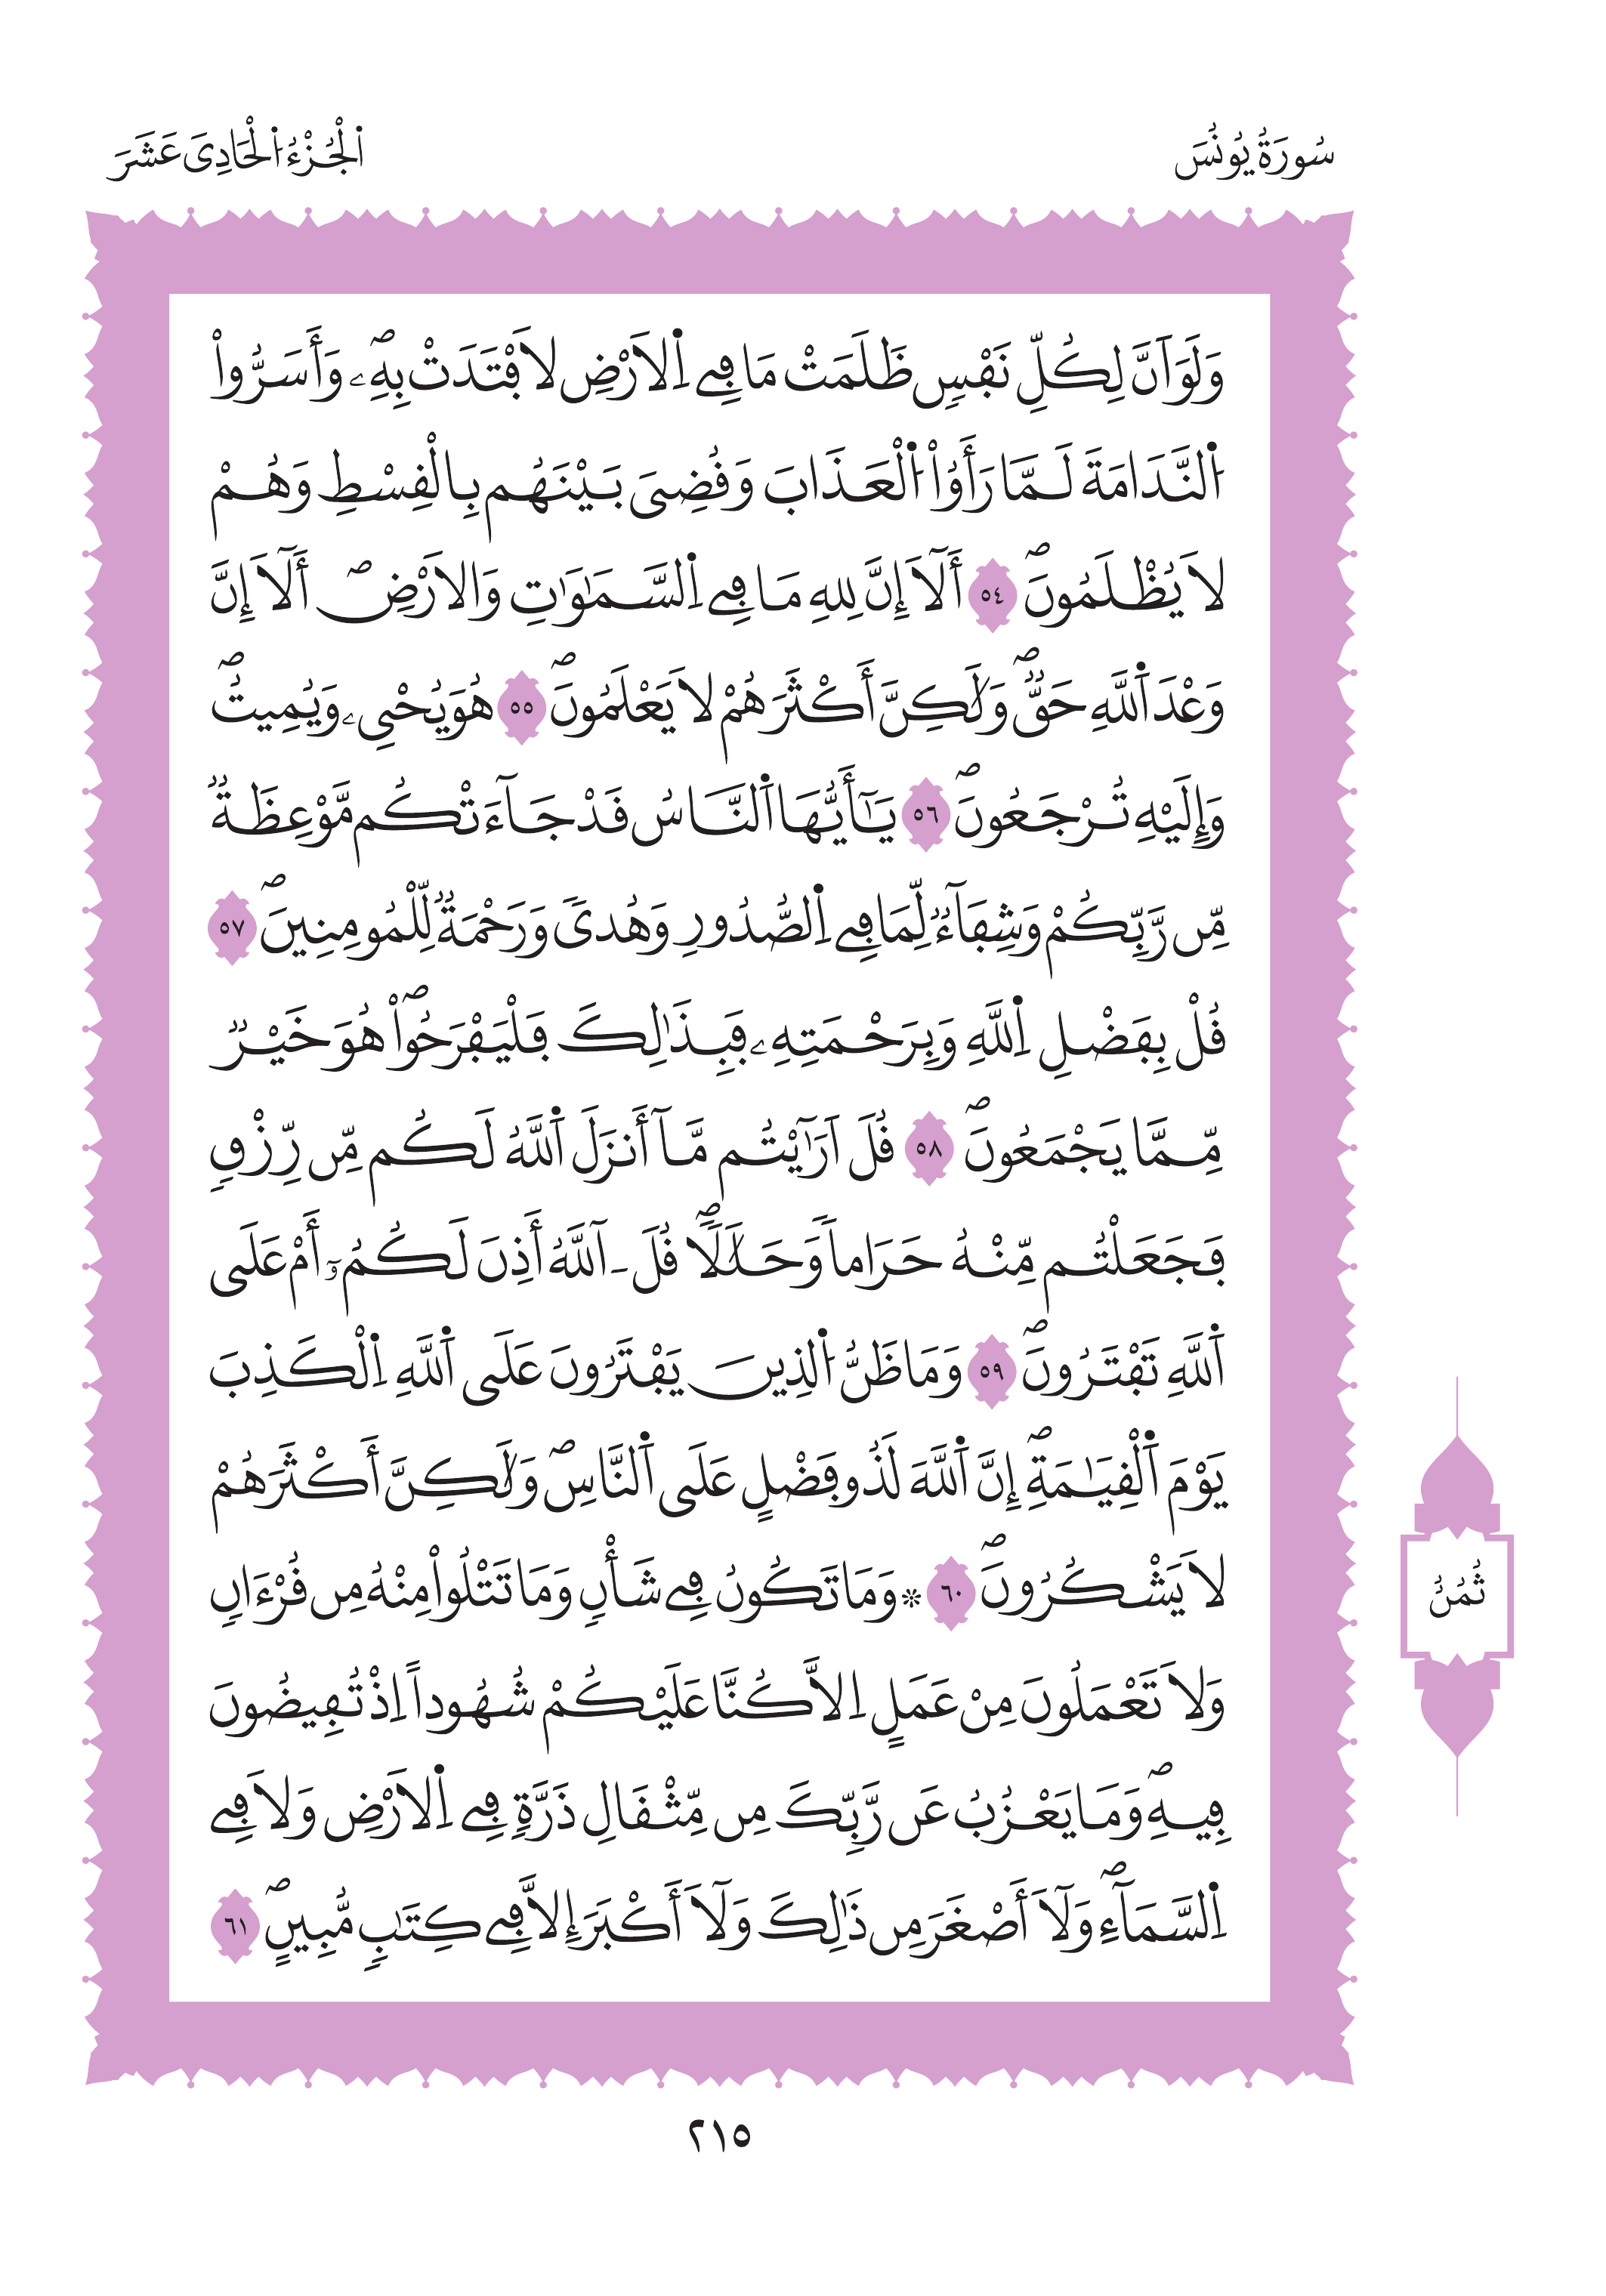 سُورَةُ يُونُسَ
اَ۬لْجُزْءُ اُ۬لْحَادِيَ عَشَرَ
وَلَوَ اَنَّ لِكُلِّ نَفْسٖ ظَلَمَتْ مَا فِے اِ۬لَارْضِ لَافْتَدَتْ بِهِۦۖ وَأَسَرُّواْ
اُ۬لنَّدَامَةَ لَمَّا رَأَوُاْ اُ۬لْعَذَابَ وَقُضِيَ بَيْنَهُم بِالْقِسْطِ وَهُمْ
لَا يُظْلَمُونَۖ ٥٤ أَلَآ إِنَّ لِلهِ مَا فِے اِ۬لسَّمَٰوَٰتِ وَالَارْضِۖ أَلَآ إِنَّ
وَعْدَ اَ۬للَّهِ حَقّٞۖ وَلَٰكِنَّ أَكْثَرَهُمْ لَا يَعْلَمُونَۖ ٥٥ هُوَ يُحْيِۦ وَيُمِيتُۖ
وَإِلَيْهِ تُرْجَعُونَۖ ٥٦ يَٰٓأَيُّهَا اَ۬لنَّاسُ قَدْ جَآءَتْكُم مَّوْعِظَةٞ
مِّن رَّبِّكُمْ وَشِفَآءٞ لِّمَا فِے اِ۬لصُّدُورِ وَهُدىٗ وَرَحْمَةٞ لِّلْمُومِنِينَۖ ٥٧
قُلْ بِفَضْلِ اِ۬للَّهِ وَبِرَحْمَتِهِۦ فَبِذَٰلِكَ فَلْيَفْرَحُواْۖ هُوَ خَيْرٞ
مِّمَّا يَجْمَعُونَۖ ٥٨ قُلَ اَرَٰٓيْتُم مَّآ أَنزَلَ اَ۬للَّهُ لَكُم مِّن رِّزْقٖ
فَجَعَلْتُم مِّنْهُ حَرَاماٗ وَحَلَٰلٗاۖ قُلَ ـ آللَّهُ أَذِنَ لَكُمُۥٓ أَمْ عَلَي
اَ۬للَّهِ تَفْتَرُونَۖ ٥٩ وَمَا ظَنُّ اُ۬لذِينَ يَفْتَرُونَ عَلَي اَ۬للَّهِ اِ۬لْكَذِبَ
يَوْمَ اَ۬لْقِيَٰمَةِۖ إِنَّ اَ۬للَّهَ لَذُو فَضْلٍ عَلَي اَ۬لنَّاسِۖ وَلَٰكِنَّ أَكْثَرَهُمْ
لَا يَشْكُرُونَۖ ٦٠ ۞ وَمَا تَكُونُ فِے شَأْنٖ وَمَا تَتْلُواْ مِنْهُ مِن قُرْءَانٖ
وَلَا تَعْمَلُونَ مِنْ عَمَلٍ اِلَّا كُنَّا عَلَيْكُمْ شُهُوداً اِذْ تُفِيضُونَ
فِيهِۖ وَمَا يَعْزُبُ عَن رَّبِّكَ مِن مِّثْقَالِ ذَرَّةٖ فِے اِ۬لَارْضِ وَلَا فِے
اِ۬لسَّمَآءِۖ وَلَآ أَصْغَرَ مِن ذَٰلِكَ وَلَآ أَكْبَرَ إِلَّا فِے كِتَٰبٖ مُّبِينٍۖ ٦١
ثُمُنُ
٢١٥